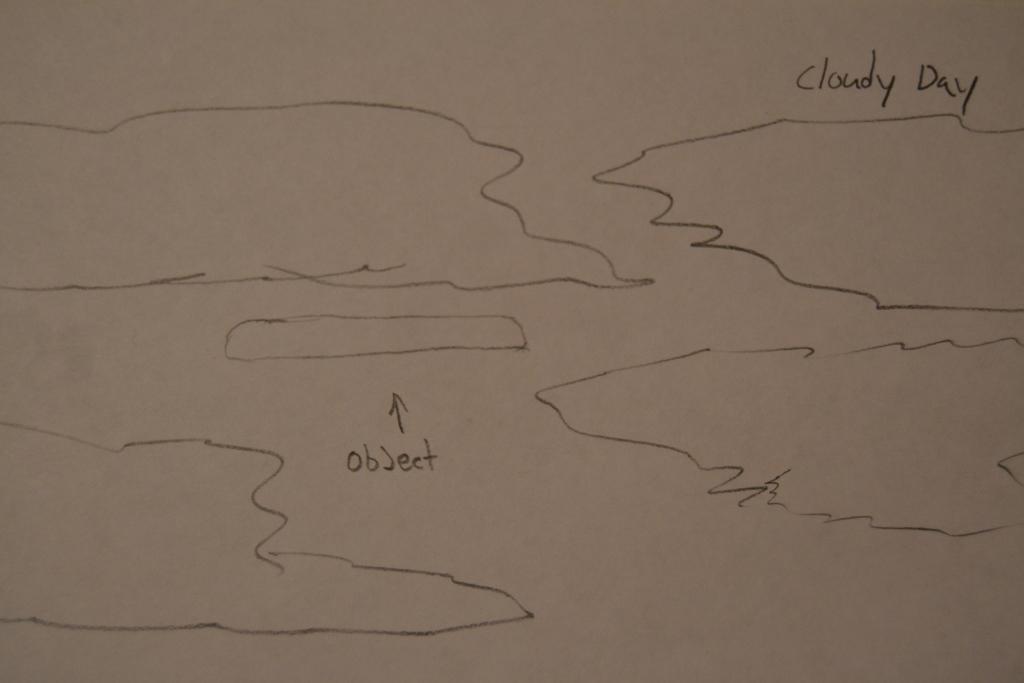 Cloudy Day
object